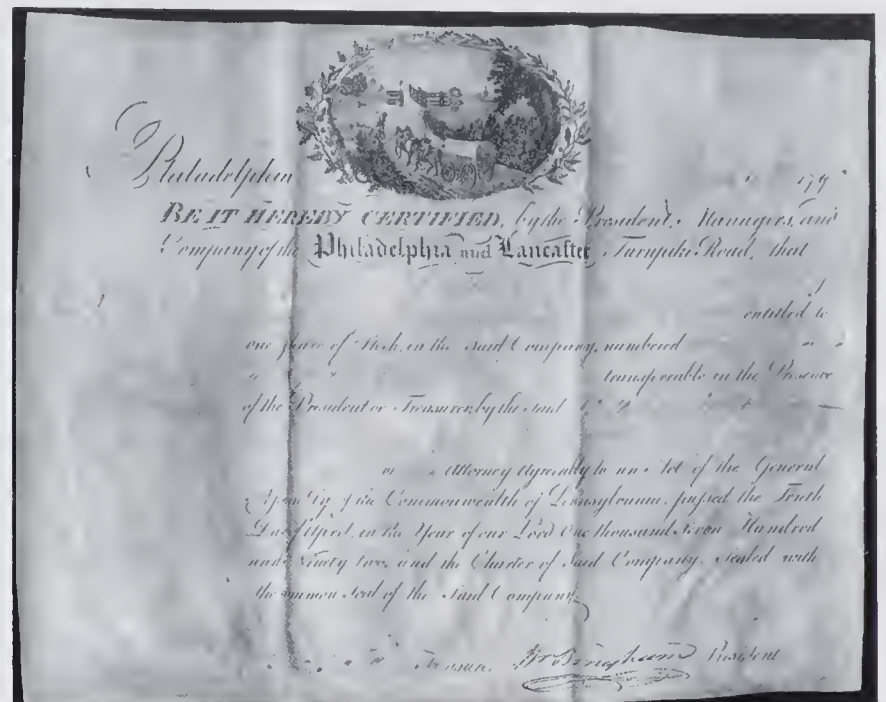 Philadelphia 179
BE IT HEREBY CERTIFIED, by the President, Managers, and
Company of the Philadelphia and Lancaster Turnpike Road, that
entitled to
one share of Stock, in the said Company, numbered
transferable in the Presence
of the President or Treasurer, by the said
or Attorney Agreeably to an Act of the General
Assembly of the Commonwealth of Pennsylvania, passed the Tenth
Day of April, in the Year of our Lord One thousand Seven Hundred
and Ninety two, and the Charter of said Company, Sealed with
the common Seal of the said Company,
Treasur. Wm Bingham President